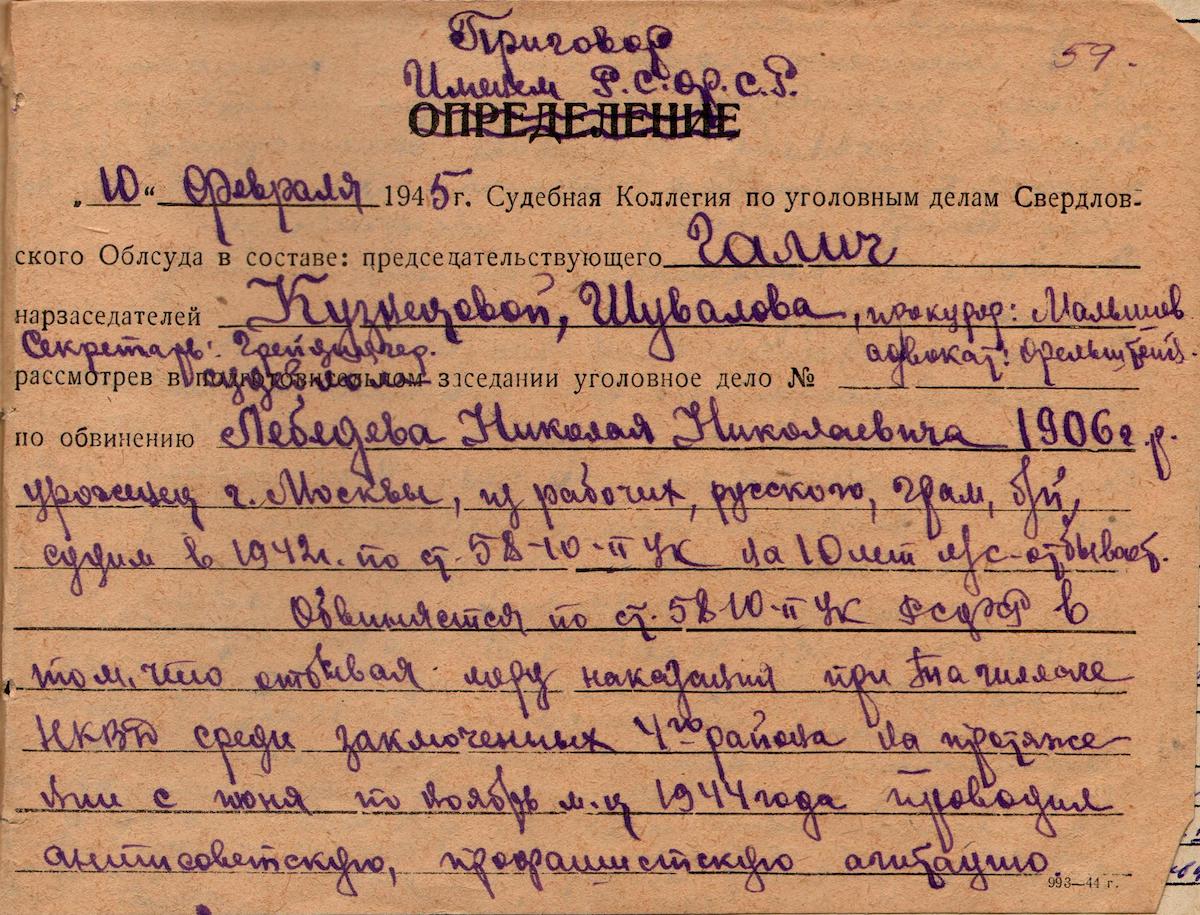 Приговор
59.
Именем Р.С.Ф.С.Р.
ОПРЕДЕЛЕНИЕ
„10“ февраля 1945 г. Судебная Коллегия по уголовным делам Свердлов-
ского Облсуда в составе: председательствующего Галич
нарзаседателей Кузнецовой, Шувалова, прокурор: Малышев
Секретарь: адвокат:
рассмотрев в подготовительном заседании уголовное дело №
по обвинению Лебедева Николая Николаевича 1906 г.р.
урожец г. Москвы, из рабочих, русского, грам, б/п,
судим в 1942 г. по ст. 58-10-II УК на 10 лет л/с - отбывает.
Обвиняется по ст. 58-10-II УК РСФСР в
том, что отбывая меру наказания при Тагиллаге
НКВД среди заключенных 4го района на протяже-
нии с июня по ноябрь м-ц 1944 года проводил
антисоветскую, профашистскую агитацию.
993—44 г.